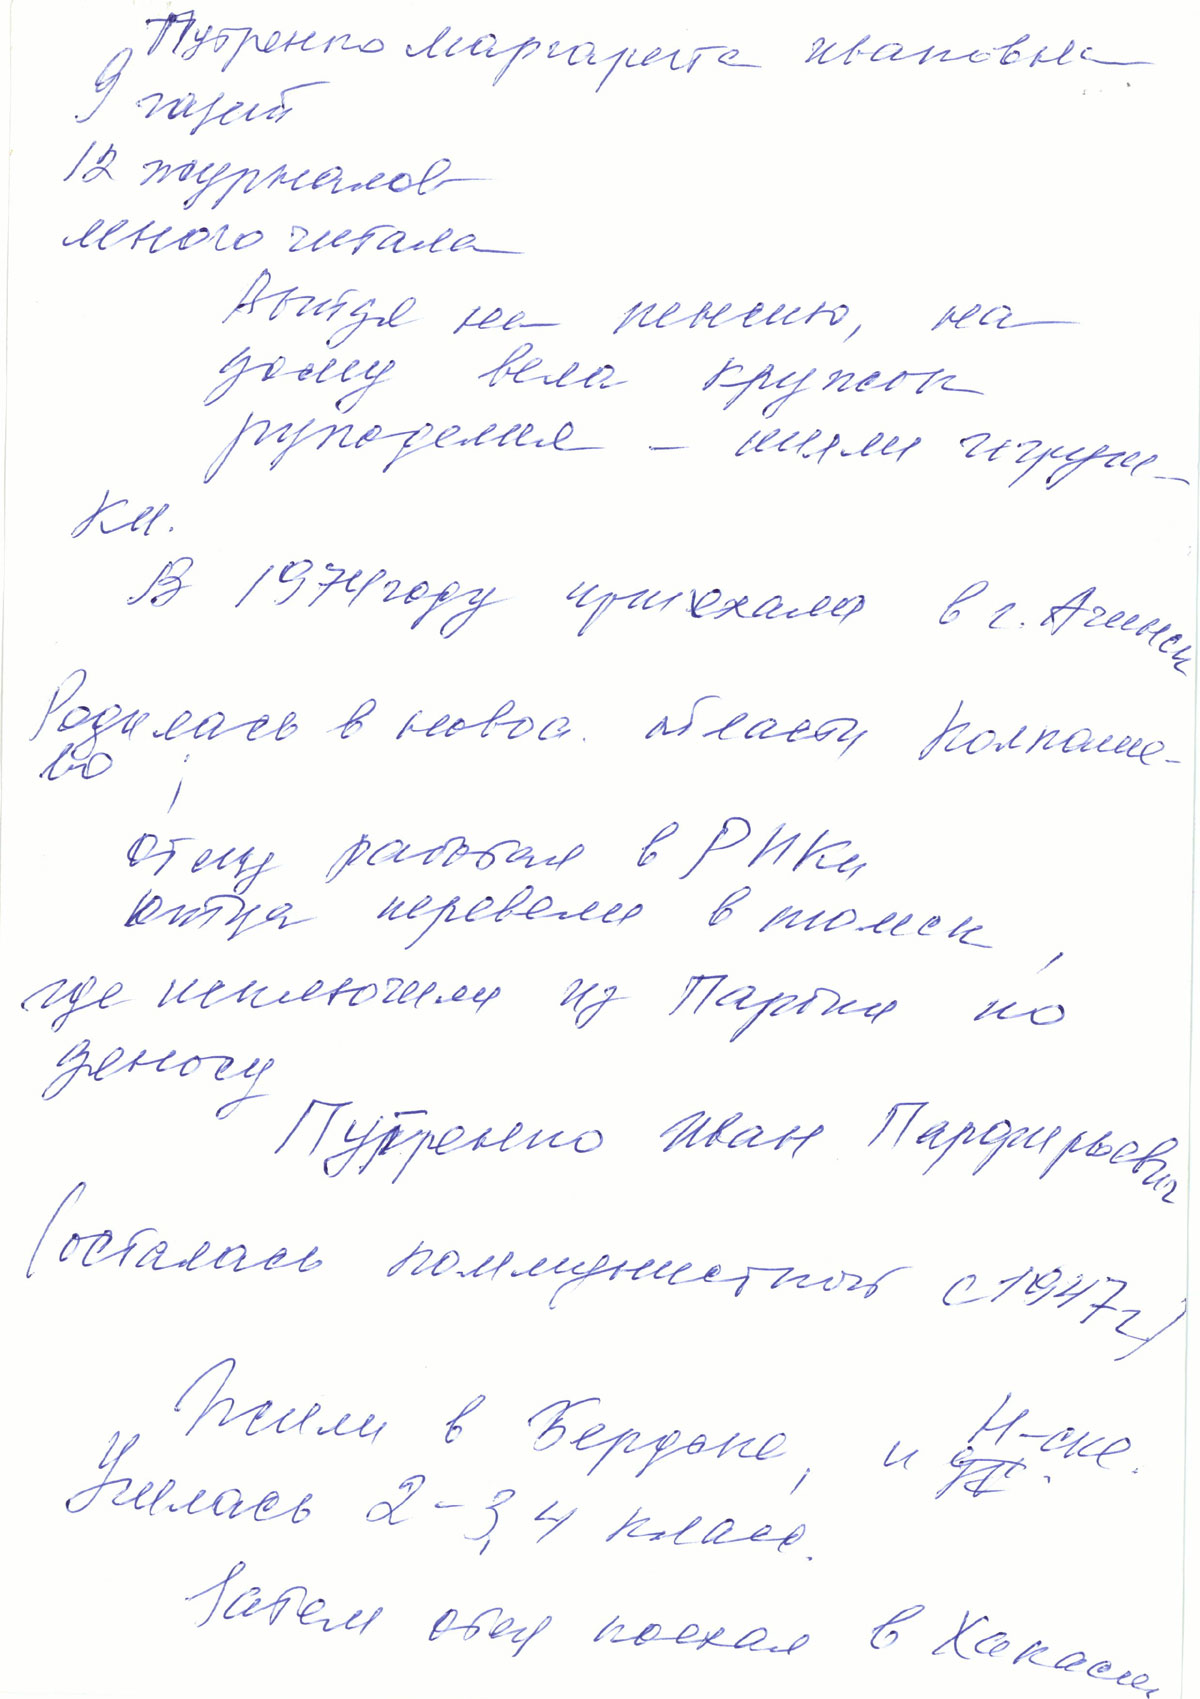 Путренко Маргарита Ивановна
9 газет
12 журналов
много читала
Выйдя на пенсию, на
дому вела кружок
рукоделия – шили игруш-
ки.
В 1974 году приехали в г. Ачинск
Родилась в новос. области Колпаше-
во
отец работал в РИКи
отца перевели в томск,
где исключили из Партии по
доносу
Путренко Иван Парфирьевич
(осталась коммунисткой с 1947 г)
Жили в Бердске, и Н-ске.
Училась 2-3, 4 класс.
Затем отец поехал в Хакасию